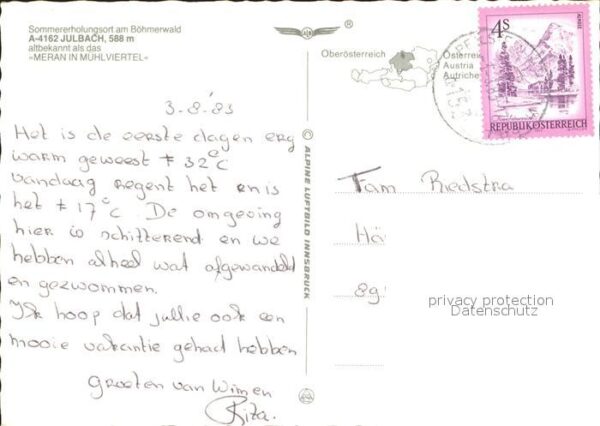 Sommererholungsort am Böhmerwald
A-4162 JULBACH, 588 m
altbekannt als das
»MERAN IN MÜHLVIERTEL«
®
Oberösterreich
Österreich
Austria
Autriche
4s
ALMSEE
REPUBLIK ÖSTERREICH
3-8-83
Het is de eerste dagen erg
warm geweest ± 32°C
vandaag regent het en is
het ± 17°C. De omgeving
hier is schitterend en we
hebben alheel wat afgewandeld
en gezwommen.
Ik hoop dat jullie ook een
mooie vakantie gehad hebben
Groeten van Wim en
Riza.
© ALPINE LUFTBILD INNSBRUCK
Fam Riedstra
Hä
89
privacy protection
Datenschutz